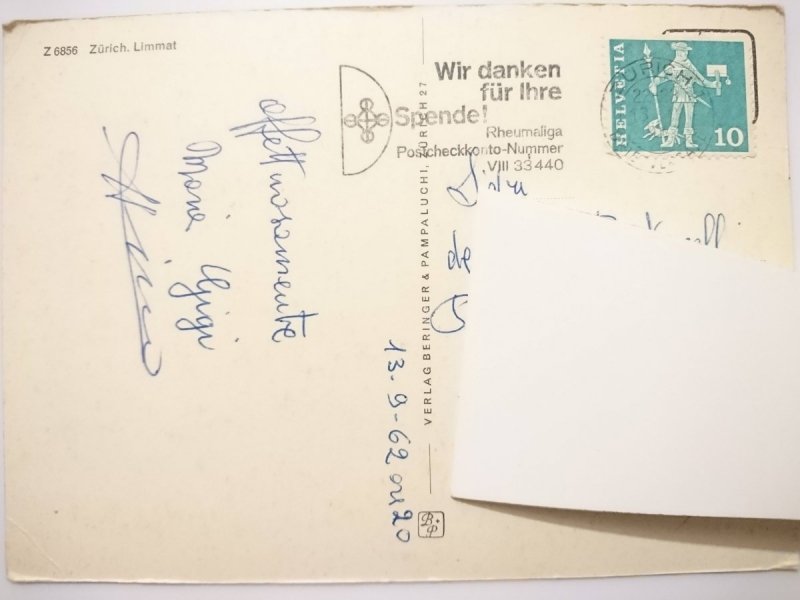 Z 6856 Zürich. Limmat
Wir danken
für Ihre
Spende!
Rheumaliga
Postcheckkonto-Nummer
VIII 33440
HELVETIA
10
ZÜRICH
affettuosamente
Maria Gigi
13-9-62 ore 20
de
VERLAG BERINGER & PAMPALUCHI, ZÜRICH 27
B+P